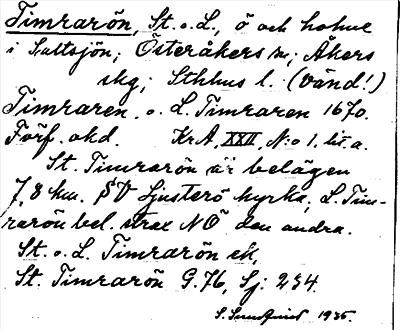 Timrarön, St. o. L., ö och holme
i Saltsjön; Österåkers sn; Åkers
skg; Sthlms l. (Vänd!)
Timraren. o. L. Timraren 1670.
Förf. okd. KrA, XXII, N:o 1, lit. a.
St. Timrarön är belägen
7,8 km. SV Ljusterö kyrka; L. Tim-
rarön bel. strax NÖ den andra.
St. o. L. Timrarön ek,
St. Timrarön G. 76, Sj: 234.
S. Sundqvist 1935.